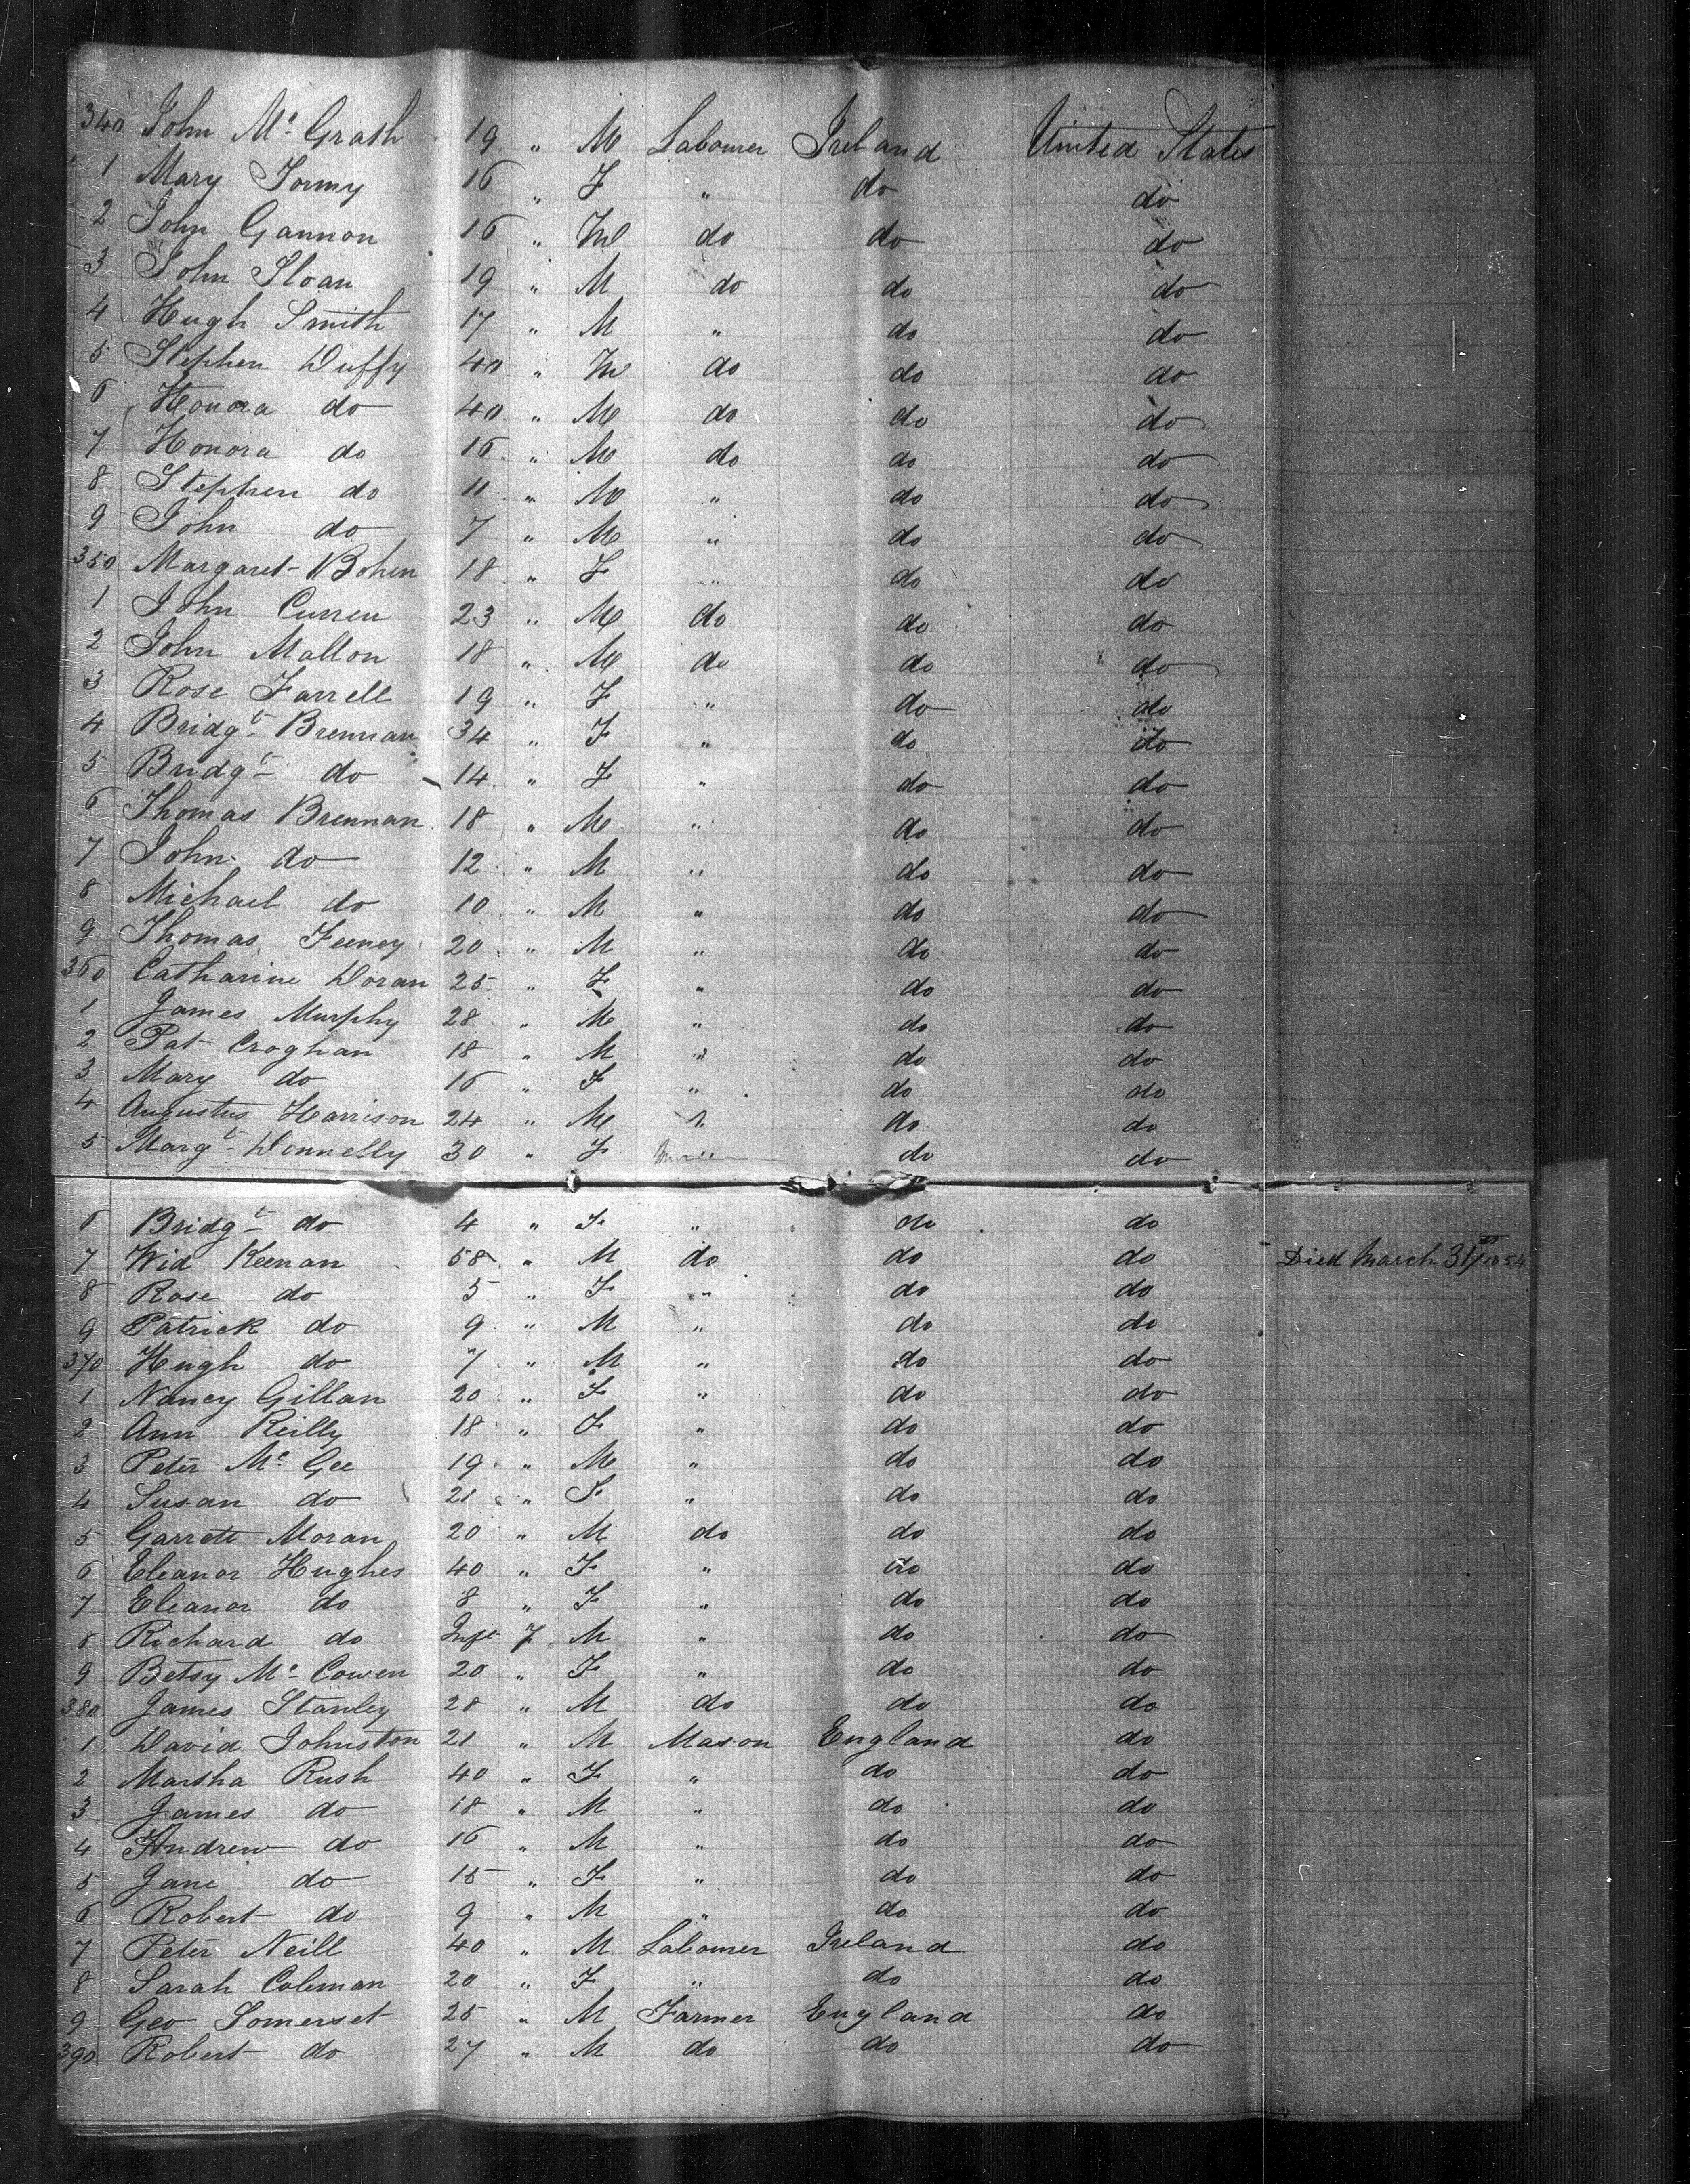 340 John Mc Grath 19 " M Labourer Ireland United States
1 Mary Tormy 16 " F " do do
2 John Gannon 16 " M do do do
3 John Sloan 19 " M do do do
4 Hugh Smith 17 " M " do do
5 Stephen Duffy 40 " M do do do
6 Honora do 40 " M do do do
7 Honora do 16 " M do do do
8 Stephen do 11 " M " do do
9 John do 7 " M " do do
350 Margaret Bohen 18 " F " do do
1 John Curren 23 " M do do do
2 John Mallon 18 " M do do do
3 Rose Farrell 19 " F " do do
4 Bridgt Brennan 34 " F " do do
5 Bridgt do 14 " F " do do
6 Thomas Brennan 18 " M " do do
7 John do 12 " M " do do
8 Michael do 10 " M " do do
9 Thomas Feeney 20 " M " do do
360 Catharine Doran 25 " F " do do
1 James Murphy 28 " M " do do
2 Pat Croghan 18 " M " do do
3 Mary do 16 " F " do do
4 Augustus Harrison 24 " M do do
5 Margt Donnelly 30 " F do do
6 Bridgt do 4 " F " do do
7 Wid Keenan 58 " M do do do Died March 31st 1854
8 Rose do 5 " F " do do
9 Patrick do 9 " M " do do
370 Hugh do 7 " M " do do
1 Nancy Gillan 20 " F " do do
2 Ann Reilly 18 " F " do do
3 Peter Mc Gee 19 " M " do do
4 Susan do 21 " F " do do
5 Garrett Moran 20 " M do do do
6 Eleanor Hughes 40 " F " do do
7 Eleanor do 8 " F " do do
8 Richard do Inft 7 M " do do
9 Betsy Mc Cowen 20 " F " do do
380 James Stanley 28 " M do do do
1 David Johnston 21 " M Mason England do
2 Martha Rush 40 " F " do do
3 James do 18 " M " do do
4 Andrew do 16 " M " do do
5 Jane do 15 " F " do do
6 Robert do 9 " M " do do
7 Peter Neill 40 " M Labourer Ireland do
8 Sarah Coleman 20 " F " do do
9 Geo Somerset 25 " M Farmer England do
390 Robert do 27 " M do do do